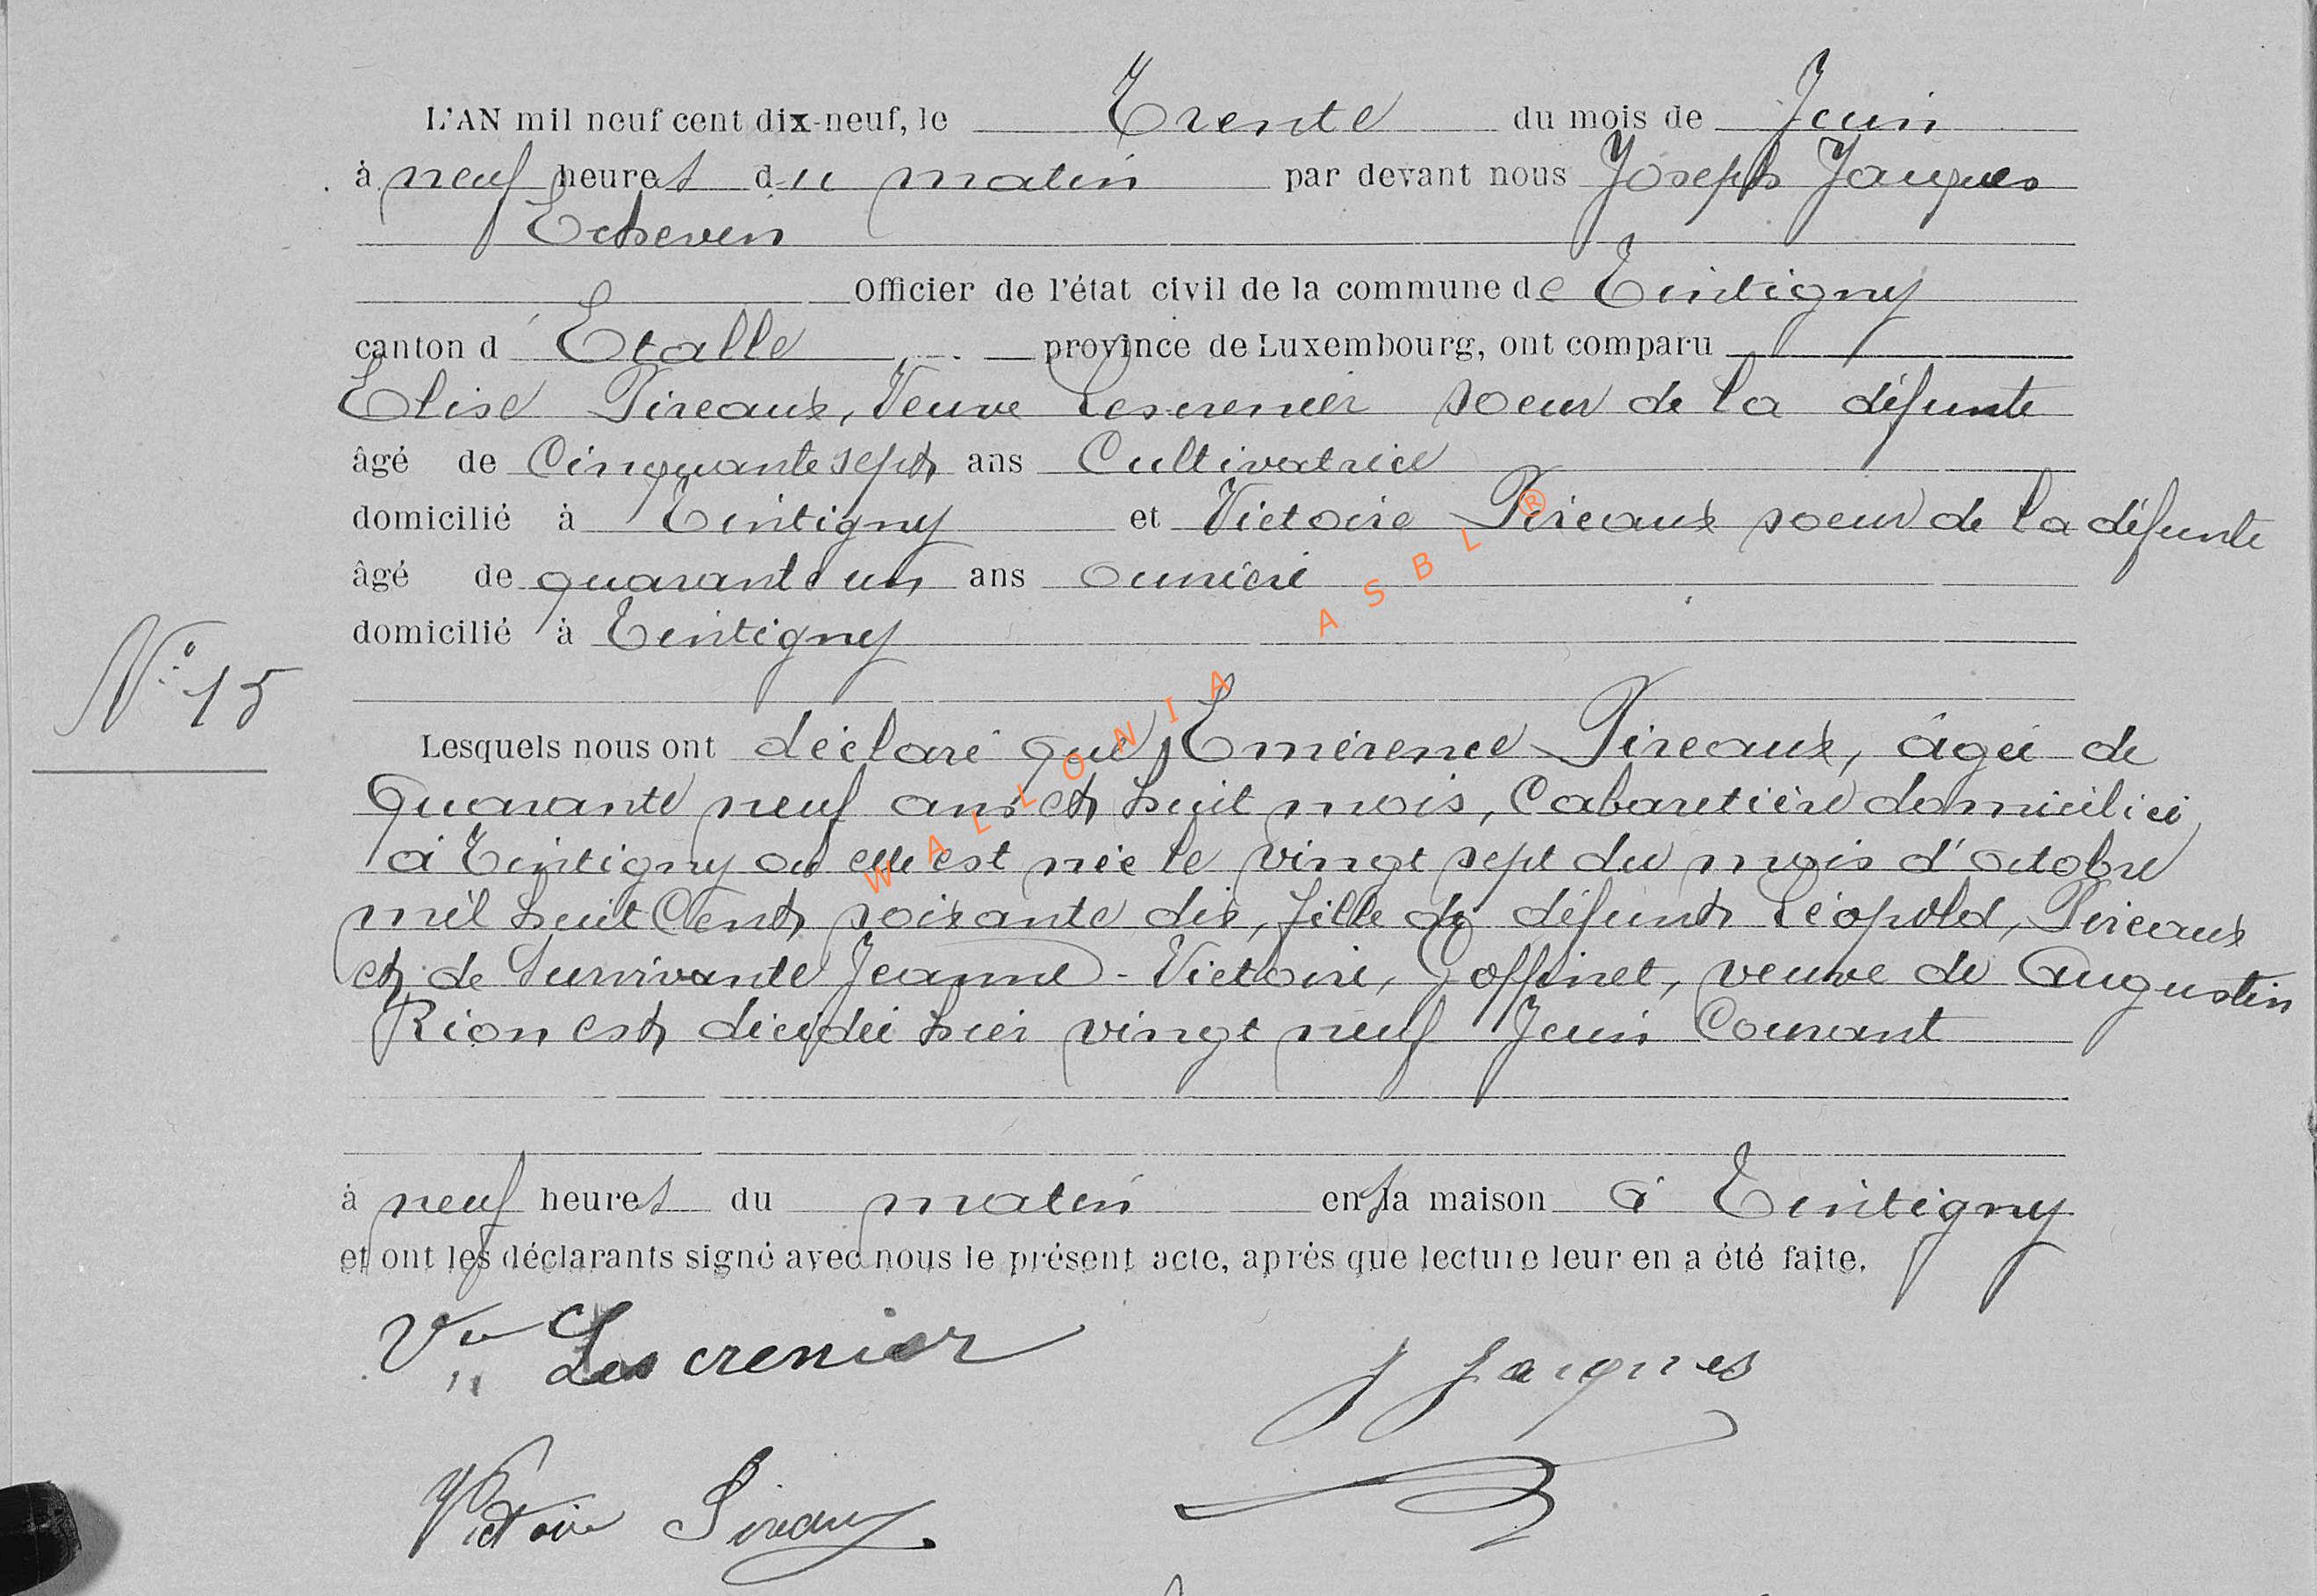 L'AN mil neuf cent dix-neuf, le Trente du mois de Juin
à neuf heures du matin par devant nous Joseph Jacques
Echevin
Officier de l'état civil de la commune de Tintigny
canton d'Etalle province de Luxembourg, ont comparu
Elise Pireaux, Veuve Lescrenier soeur de la défunte
âgé de Cinquante sept ans Cultivatrice
domicilié à Tintigny et Victoire Pireaux soeur de la défunte
âgé de quarante un ans ouvrière
domicilié à Tintigny
N° 15
Lesquels nous ont déclaré que Emérence Pireaux, âgée de
Quarante neuf ans et huit mois, Cabaretière domiciliée
à Tintigny où elle est née le vingt sept du mois d'octobre
mil huit Cent soixante dix, fille de défunt Léopold, Pireaux
et de Survivante Jeanne-Victoire, Goffinet, veuve de Augustin
Rion est décédée hier vingt neuf Juin Courant
à neuf heures du matin en sa maison à Tintigny
et ont les déclarants signé avec nous le présent acte, après que lecture leur en a été faite.
Ve Lescrenier
J Jacques
Victoire Pireaux
WALLONIA ASBL ®